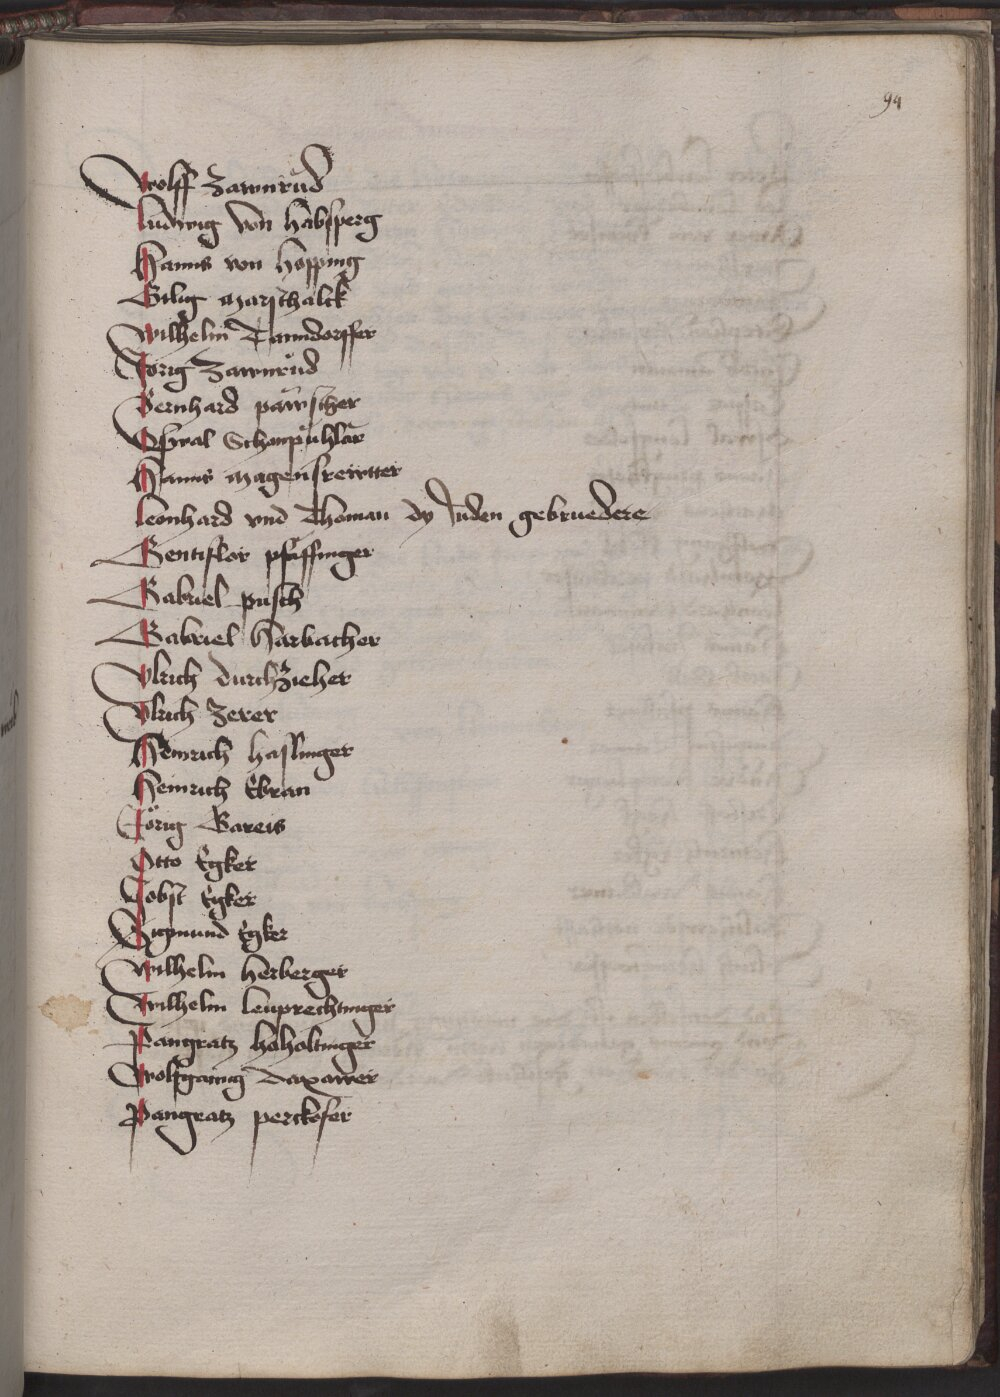 94
Wolff Zawnrüd
Ludwig von Habsperg
Hanns von Hopping
Gilig Marschalck
Wilhelm Tanndorffer
Jorig Zawnrüd
Bernhard päwscher
Oswal Schonpühlär
Hanns Magensreitter
Leonhard vnd Thoman dy Juden gebruedere
Gentiflor pfäffinger
Gabriel pusch
Gabriel Harbacher
Vlrich durchzieher
Vlrich Zerer
Heinrich Haslinger
Heinrich Ebran
Jörig Bareis
Otto Egker
Jobst Egker
Sigmund Egker
Wilhelm Herberger
Wilhelm leuprechtinger
Pangratz hoholtinger
Wolfgang Daxawer
Pangratz perckofer